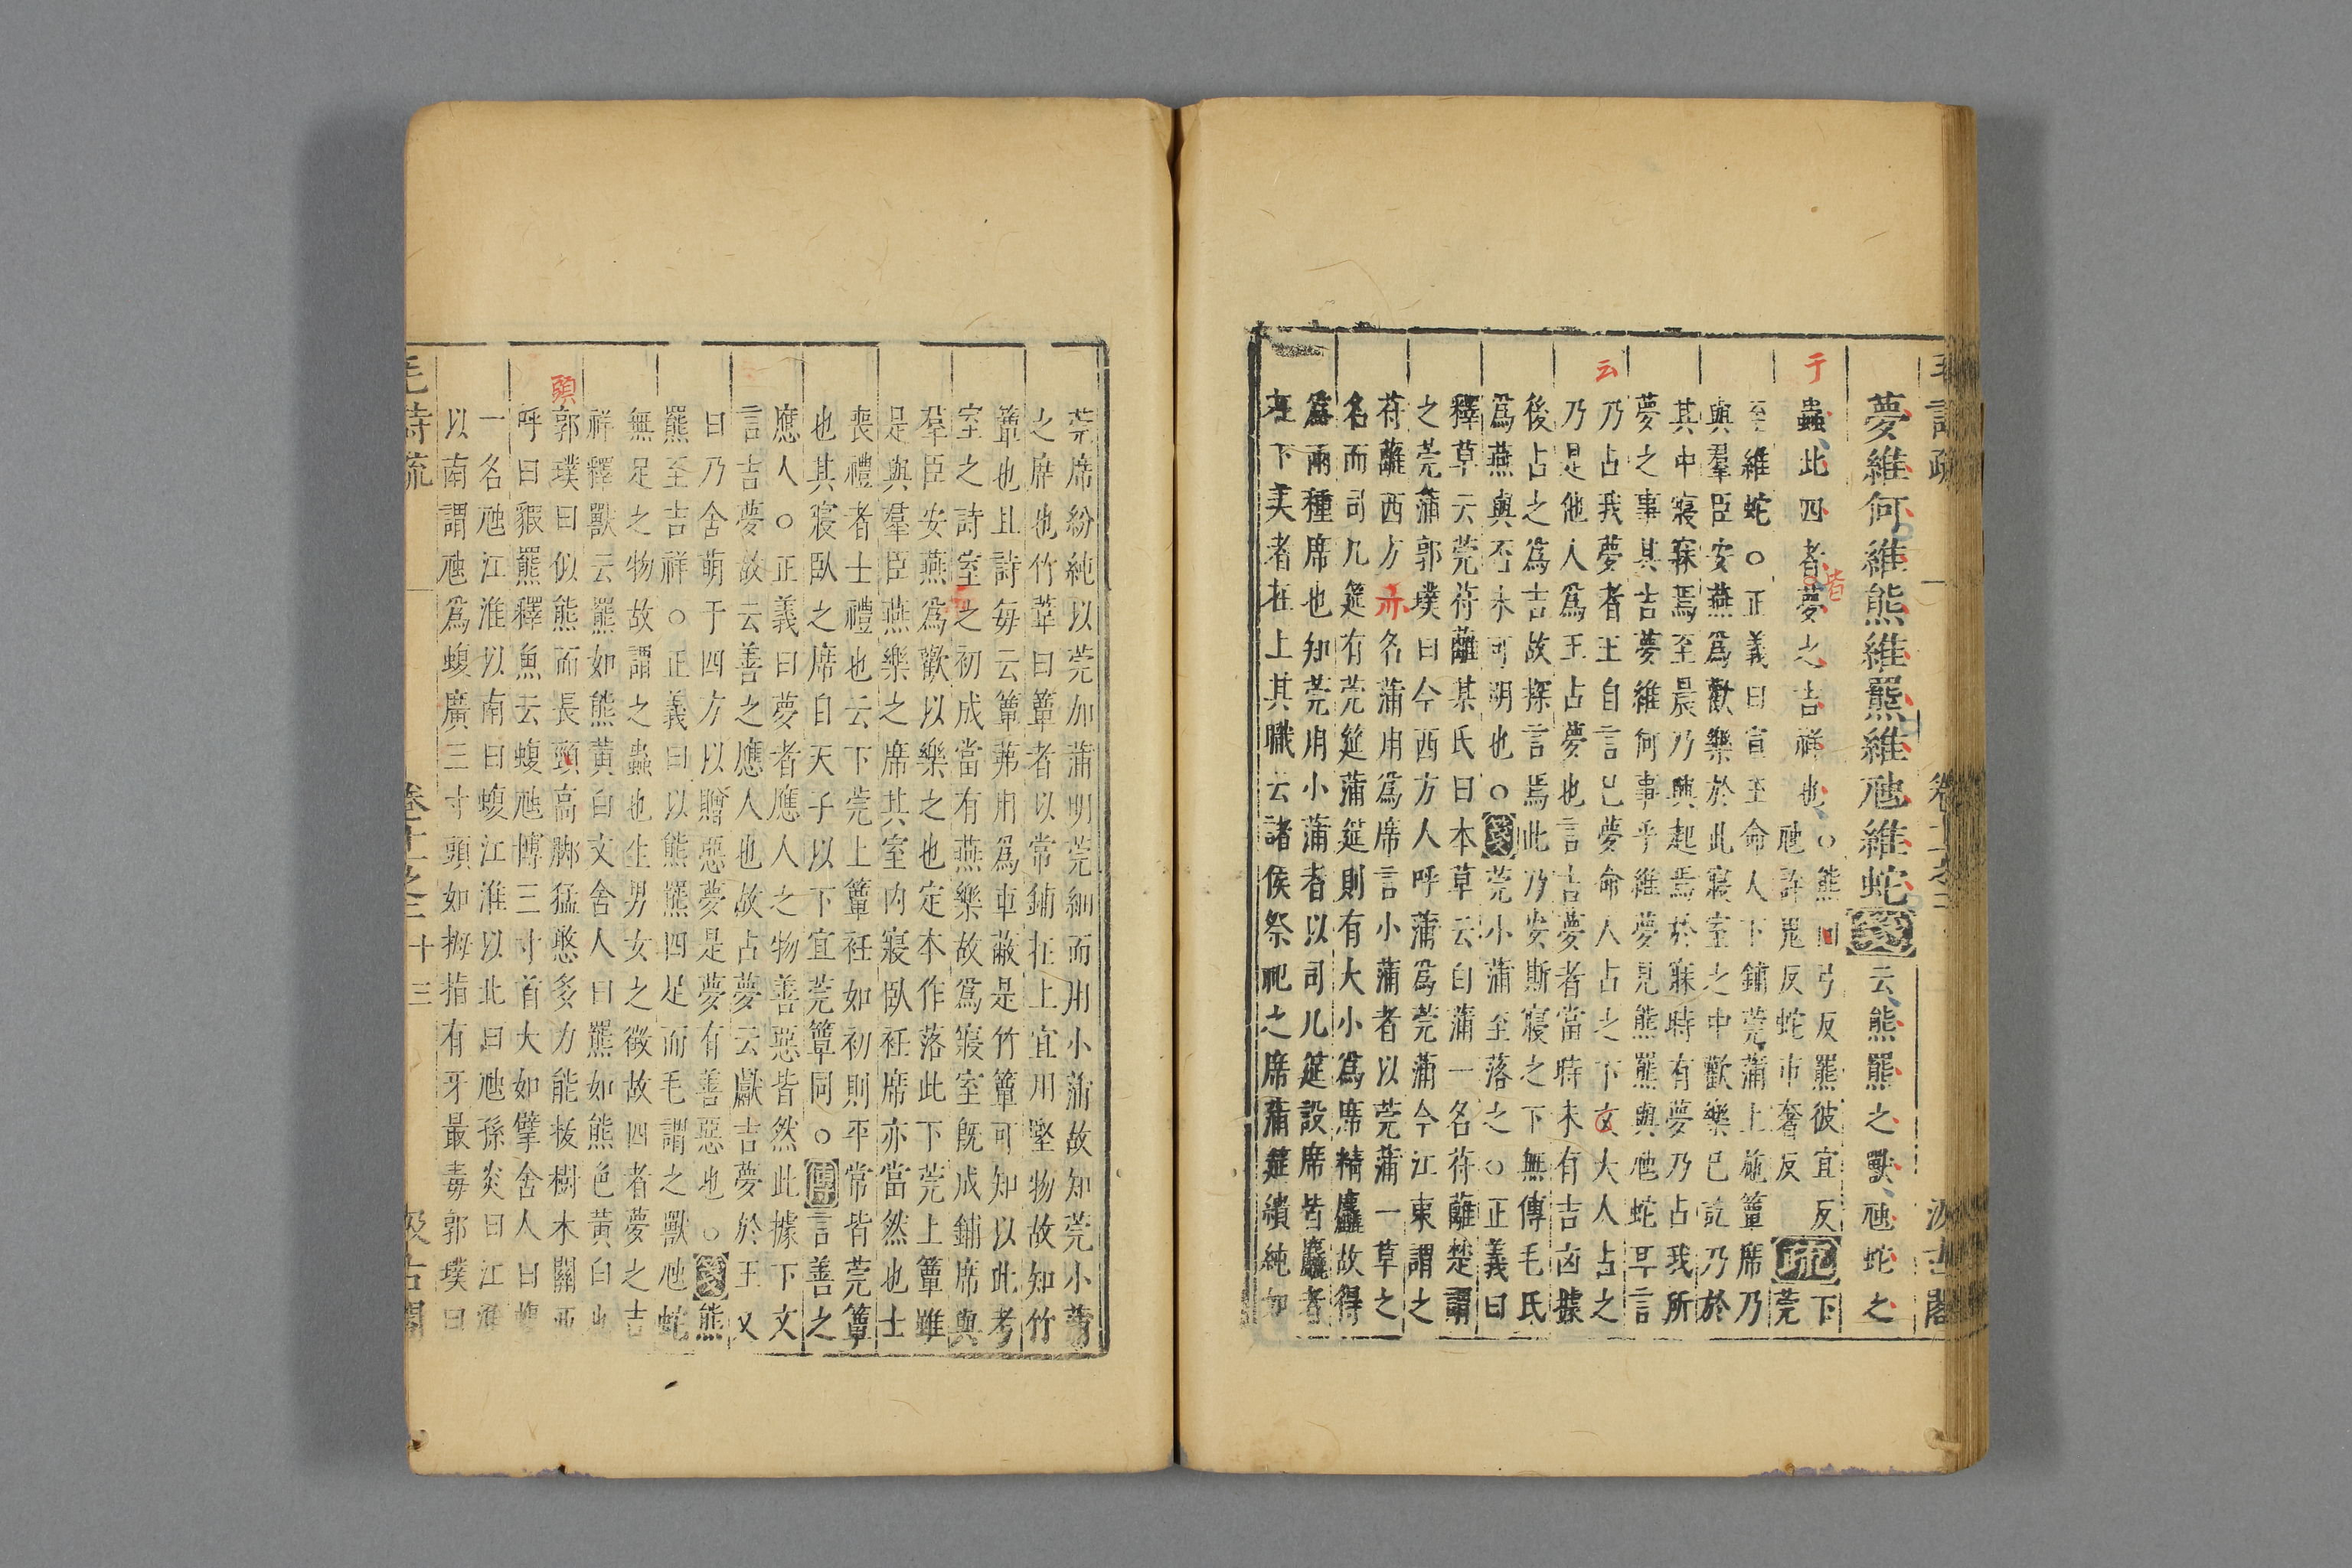 毛詩疏 卷十一之二 汲古閣
夢維何維熊維羆維虺維蛇箋云熊羆之獸虺蛇之
于
蟲此四者夢之吉祥也○熊回弓反羆彼宜反
皆
虺許鬼反蛇市奢反疏下莞
至維蛇○正義曰宣王命人下鋪莞蒲上施簟席乃
與羣臣安燕爲歡樂於此寢室之中歡樂已訖乃於
其中寢寐焉至晨乃興起焉於寐時有夢乃占我所
夢之事其吉夢維何事乎維夢見熊羆與虺蛇早言
云
乃占我夢者王自言已夢命人占之下文大人占之
乃是他人爲王占夢也言吉夢者當時未有吉凶據
後占之爲吉故探言焉此乃安斯寢之下無傳毛氏
爲燕與否未可明也○箋莞小蒲至落之○正義曰
釋草云莞苻蘺某氏曰本草云白蒲一名苻蘺楚謂
之莞蒲郭璞曰今西方人呼蒲爲莞蒲今江東謂之
苻蘺西方亦名蒲用爲席言小蒲者以莞蒲一草之
名而司几筵有莞筵蒲筵則有大小爲席精麤故得
爲兩種席也知莞用小蒲者以司几筵設席皆麤者
在下美者在上其職云諸侯祭祀之席蒲筵繢純加
莞席紛純以莞加蒲明莞細而用小蒲故知莞小蒲
之席也竹葦曰簟者以常鋪在上宜用堅物故知竹
簟也且詩每云簟茀用爲車蔽是竹簟可知以此考
室之詩室之初成當有燕樂故爲寢室旣成鋪席與
羣臣安燕爲歡以樂之也定本作落此下莞上簟雖
是與羣臣燕樂之席其室內寢臥衽席亦當然也士
喪禮者士禮也云下莞上簟衽如初則平常皆莞簟
也其寢臥之席自天子以下宜莞簟同○傳言善之
應人○正義曰夢者應人之物善惡皆然此據下文
言吉夢故云善之應人也故占夢云獻吉夢於王又
曰乃舍萌于四方以贈惡夢是夢有善惡也○箋熊
羆至吉祥○正義曰以熊羆四足而毛謂之獸虺蛇
無足之物故謂之蟲也生男女之徵故四者夢之吉
祥釋獸云羆如熊黃白文舍人曰羆如熊色黃白也
頭
郭璞曰似熊而長頸高脚猛憨多力能拔樹木關西
呼曰貑羆釋魚云蝮虺博三寸首大如擘舍人曰蝮
一名虺江淮以南曰蝮江淮以北曰虺孫炎曰江淮
以南謂虺爲蝮廣三寸頭如拇指有牙最毒郭璞曰
毛詩疏 卷十一之二 十三 汲古閣